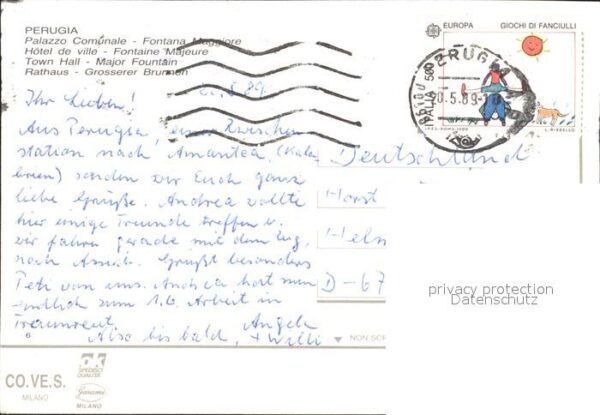 PERUGIA
Palazzo Comunale - Fontana Maggiore
Hôtel de ville - Fontaine Majeure
Town Hall - Major Fountain
Rathaus - Grosserer Brunnen
EUROPA GIOCHI DI FANCIULLI
ITALIA 500
PERUGIA
20.5.89
.5.89
Ihr Lieben!
Aus Perugia, einer Zwischen
station nach Amantea (Kala
brien) senden wir Euch ganz
liebe Grüße. Andrea wollte
hier einige Freunde treffen u.
wir fahren gerade mit dem Zug
nach Grüßt besonders
Peti von uns. Andrea hat nun
endlich zum 1.6. Arbeit in
Traunreut.
Also bis bald, Angela
+ Willi
Deutschland
Horst
Helm
D-67
privacy protection
Datenschutz
NON SCR
6
CO.VE.S.
MILANO
Garami
MILANO